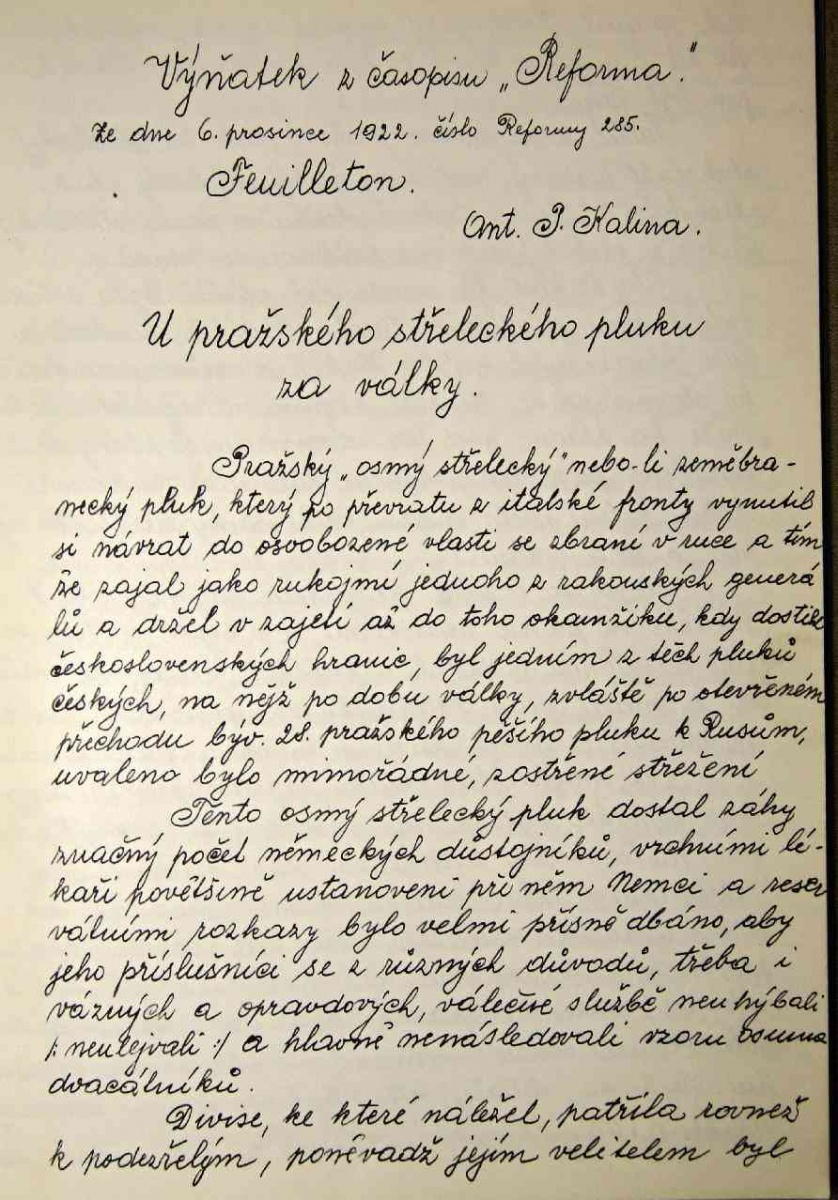 Výňatek z časopisu „Reforma."
Ze dne 6. prosince 1922. číslo Reformy 285.
Feuilleton.
Ant. P. Kalina.
U pražského střeleckého pluku
za války.
Pražský „osmý střelecký" nebo-li zeměbra-
necký pluk, který po převratu z italské fronty vynutil
si návrat do osvobozené vlasti se zbraní v ruce a tím
že zajal jako rukojmí jednoho z rakouských generá
lů a držel v zajetí až do toho okamžiku, kdy dostihl
československých hranic, byl jedním z těch pluků
českých, na nějž po dobu války, zvláště po otevřeném
přechodu býv. 28. pražského pěšího pluku k Rusům,
uvaleno bylo mimořádné, zostřené střežení
Tento osmý střelecký pluk dostal záhy
značný počet německých důstojníků, vrchními lé-
kaři povětšině ustanoveni při něm Němci a reser
válními rozkazy bylo velmi přísně dbáno, aby
jeho příslušníci se z různých důvodů, třeba i
vázných a opravdových, válečné službě neuhýbali
/: neulejvali :/ a hlavně nenásledovali vzoru osmma
dvacálníků.
Divise, ke které náležel, patřila rovnež
k podezřelým, poněvadž jejím velitelem byl